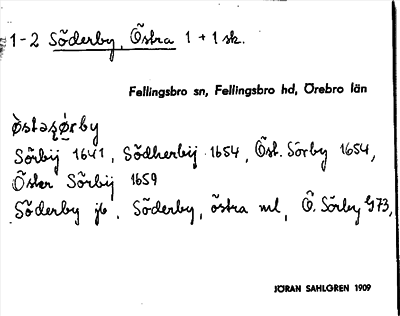 1-2 Söderby, Östra 1 + 1 sk.
Fellingsbro sn, Fellingsbro hd, Örebro län
Sörbÿ 1641, Södherbÿ 1654, Öst. Sörby 1654,
Öster Sörbÿ 1659
Söderby jb, Söderby, östra ml, Ö. Sörby G73,
JÖRAN SAHLGREN 1909